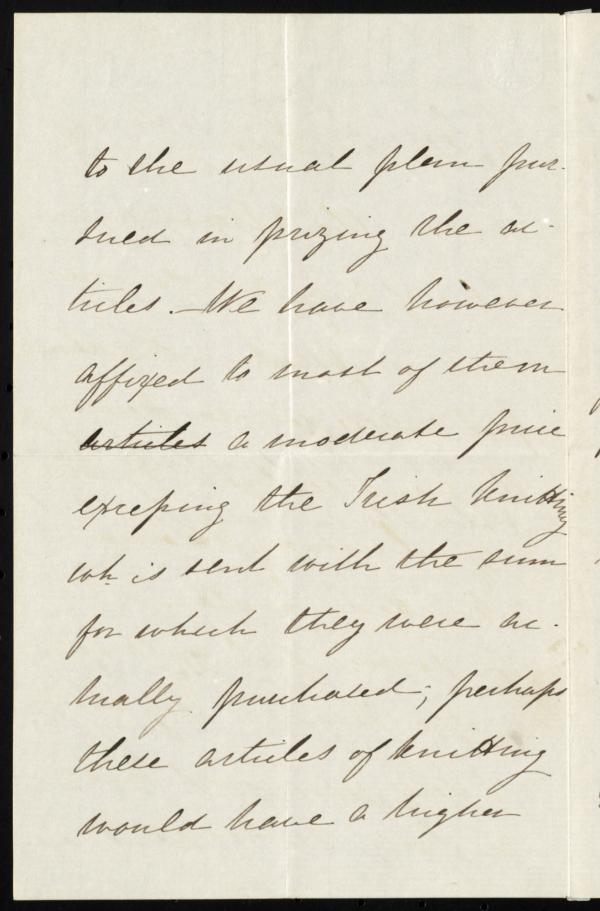 to the usual plan pur-
sued in prizing the ar-
ticles. - We have however
affixed to most of them
articles a moderate price
exceping the Irish knitting
wh. is sent with the sum
for which they were ac-
tually purchased; perhaps
these articles of knitting
would have a higher